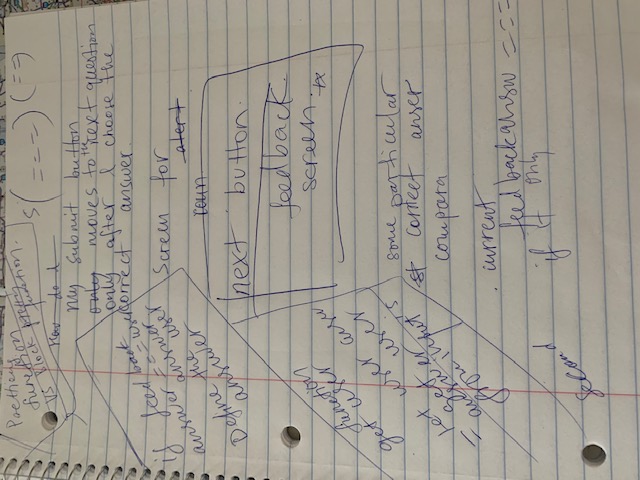 function
vs block
function.
s ( === ) ( == )
How do I
my submit button
only moves to the next question
only after I choose the
correct answer
if feedback
answer === user
answer
Define the user
answer
Screen for
alert
next button.
feedback
screen.
function
get user
Let user answ
= get user
answer
from input s
some particular
correct anser
compara
current
feedback answ ===
if it only
second